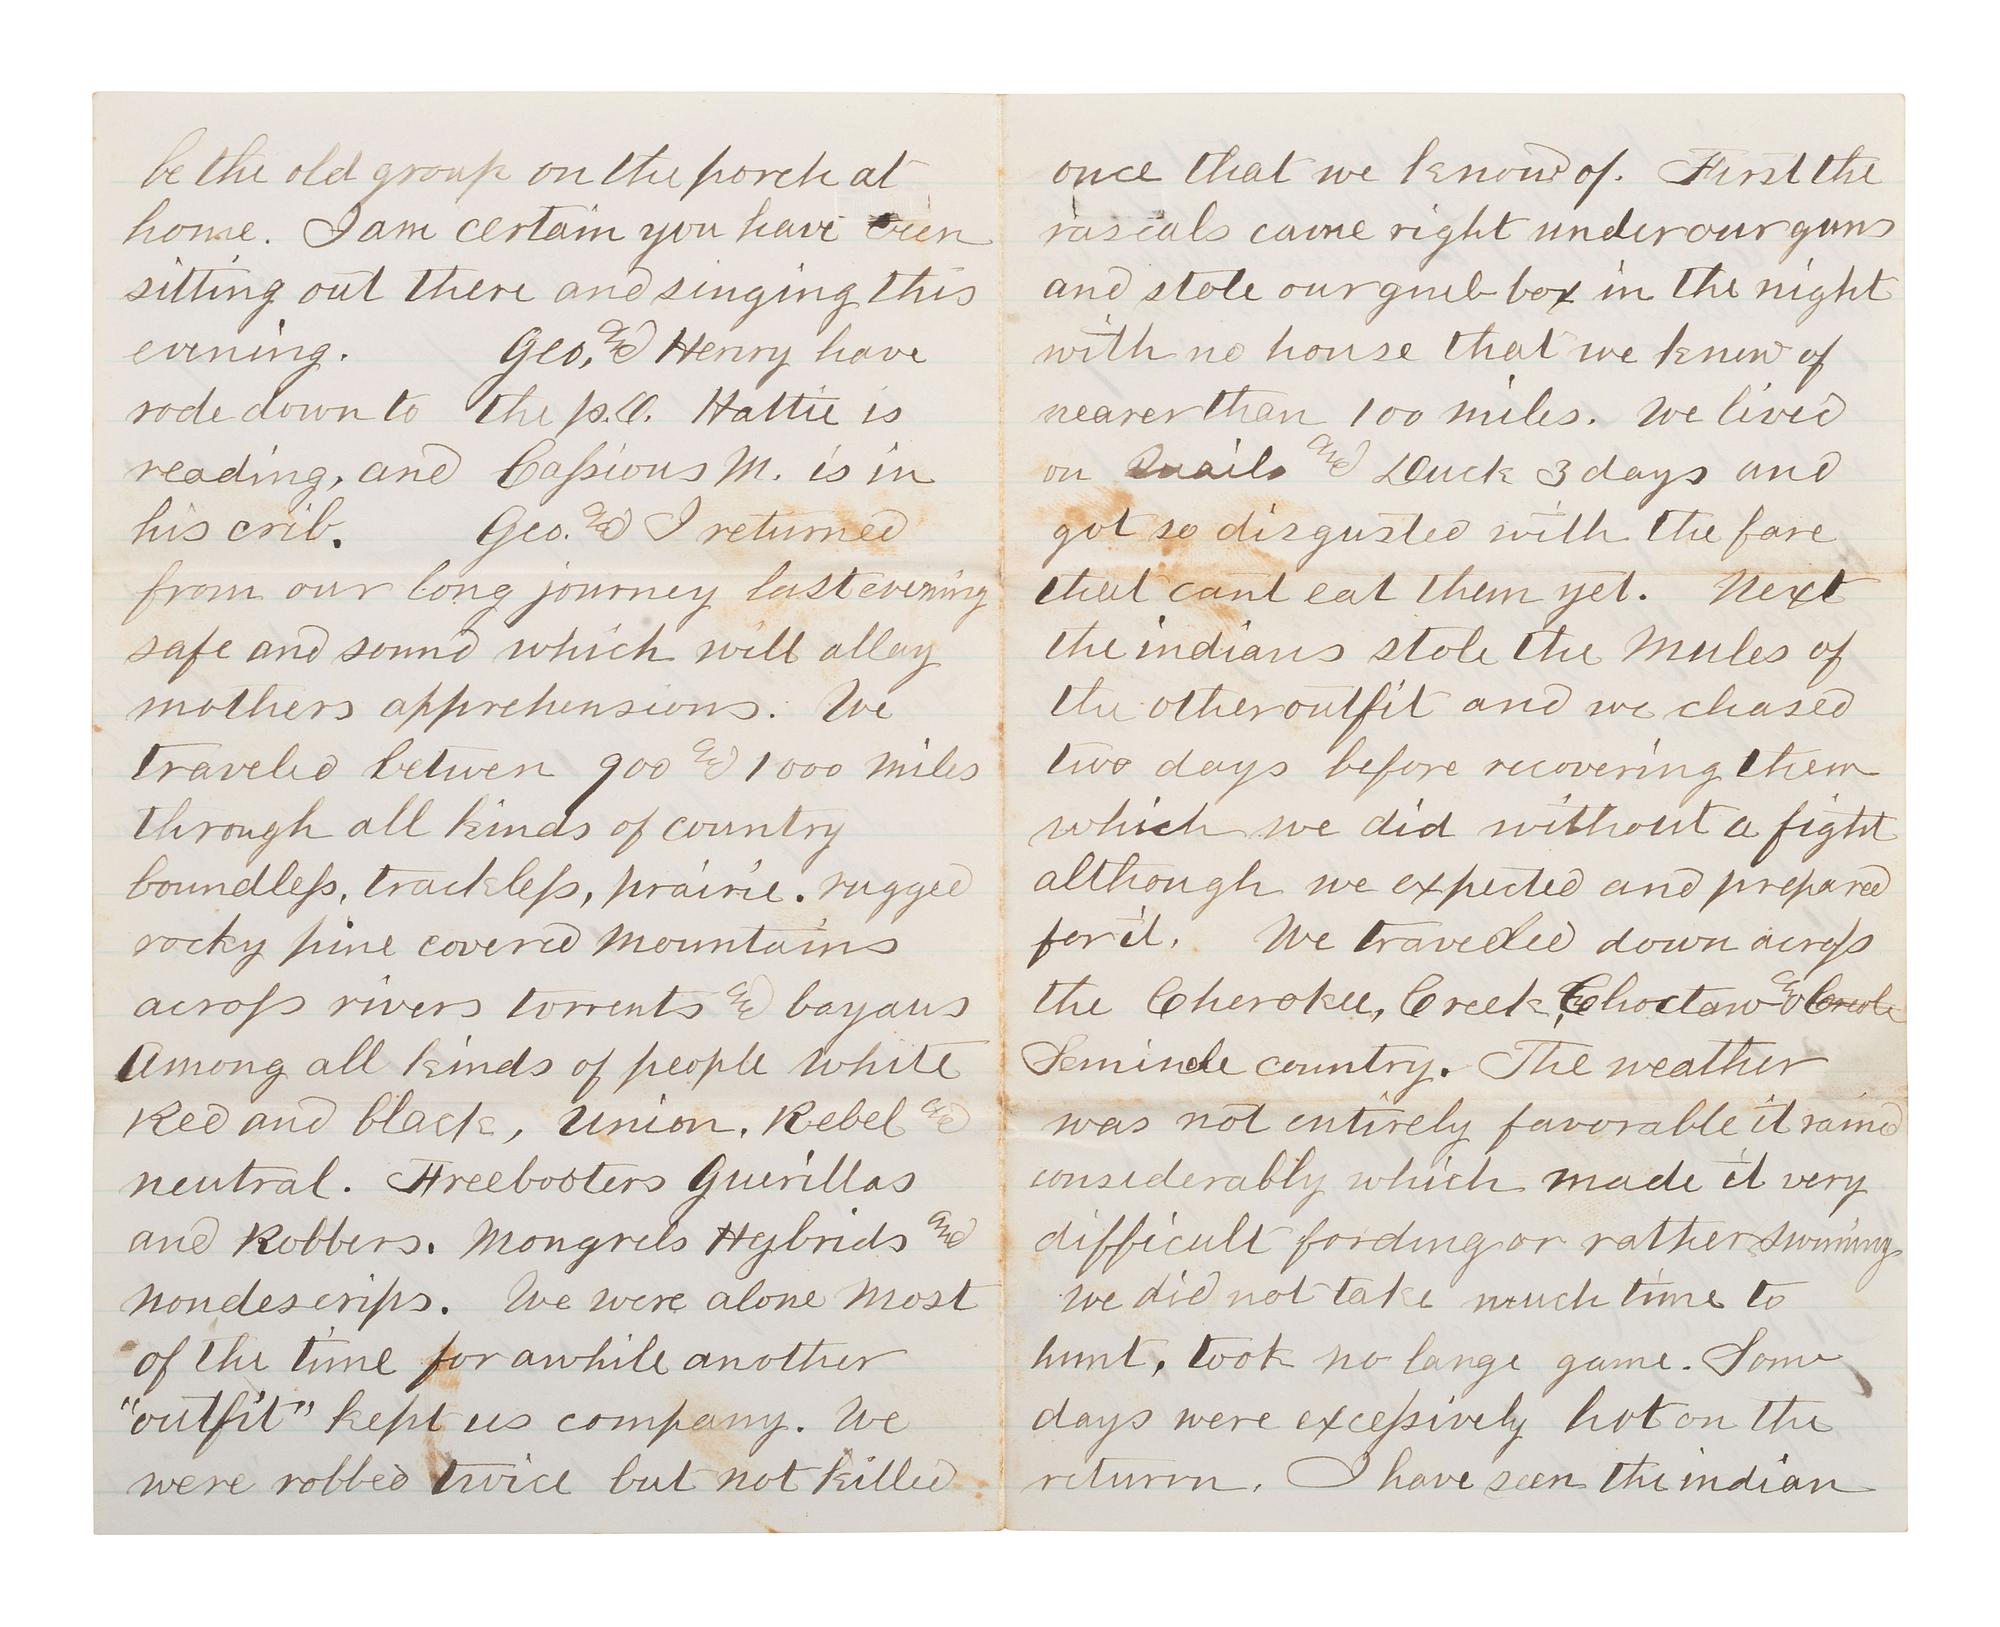 be the old group on the porch at
home. I am certain you have been
sitting out there and singing this
evening. Geo, and Henry have
rode down to the p.O. Hattie is
reading, and Cassious M. is in
his crib. Geo. and I returned
from our long journey last evening
safe and sound which will allay
mothers apprehensions. We
traveled between 900 and 1000 miles
through all kinds of country
boundless, trackless, prairie. rugged
rocky pine covered mountains
across rivers torrents and bayaus
Among all kinds of people white
Red and black, Union, Rebel and
neutral. Freebooters Guerillas
and Robbers. Mongrels Hybrids and
nondescrips. We were alone most
of the time for awhile another
"outfit" kept us company. We
were robbed twice but not killed
once that we know of. First the
rascals came right under our guns
and stole our grub-box in the night
with no house that we knew of
nearer than 100 miles. We lived
on Quails and Duck 3 days and
got so disgusted with the fare
that cant eat them yet. Next
the indians stole the mules of
the other outfit and we chased
two days before recovering them
which we did without a fight
although we expected and prepared
for it. We traveled down across
the Cherokee, Creek, Choctaw and Creole
Seminole country. The weather
was not entirely favorable it rained
considerably which made it very
difficult fording or rather swiming
we did not take much time to
hunt, took no lange game. Some
days were excessively hot on the
return. I have seen the indian